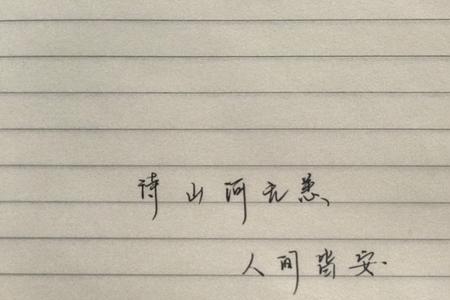 诗山河无恙
人间皆安